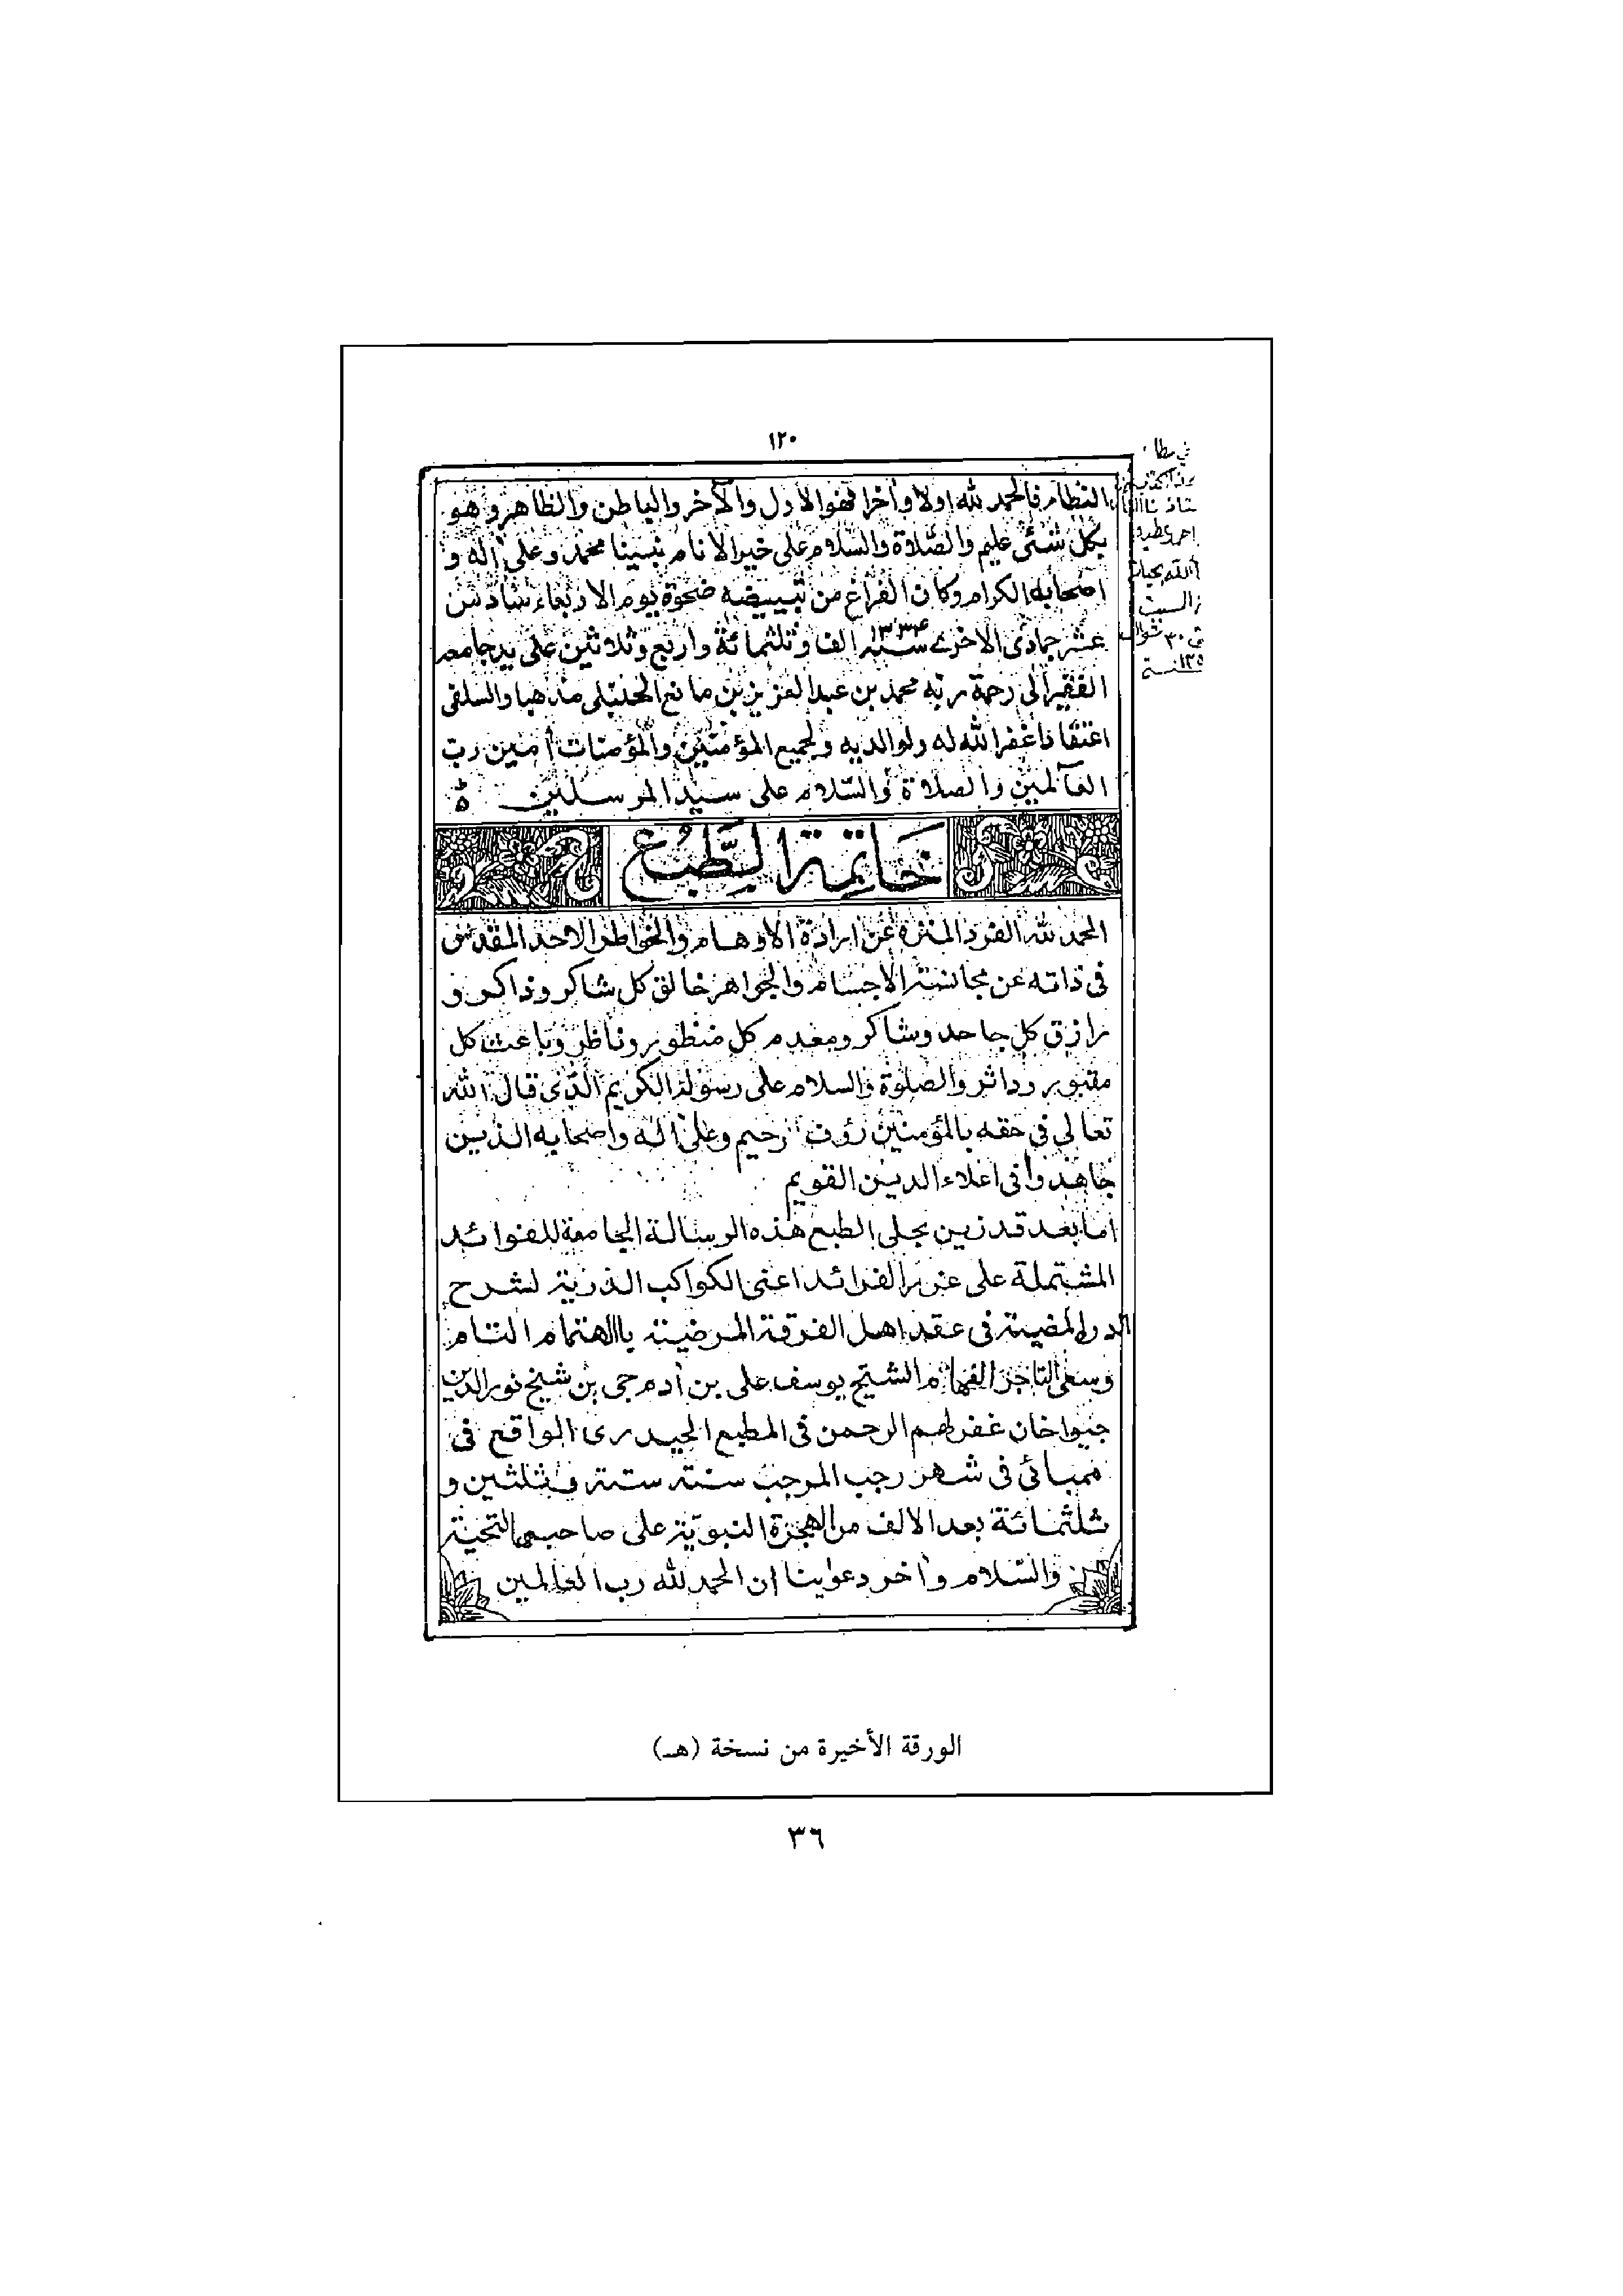 ١٢٠
النظام فالحمد لله اولا وأخرا فهو الاول والآخر والباطن والظاهر وهو
بكل شئ عليم والصّلاة والسّلام على خير الانام نبينا محمد وعلى اله و
اصحابه الكرام وكان الفراغ من تبييضه ضحوة يوم الاربعاء سادس
عشر جمادى الاخرى سنة ١٣٣٤ الف وثلثمائة واربع وثلاثين على يد جامعه
الفقير الى رحمة ربه محمد بن عبد العزيز بن مانع الحنبلى مذهبا والسلفى
اعتقادا غفر الله له ولوالديه ولجميع المؤمنين والمؤمنات أمين رب
العالمين والصلاة والسّلام على سيد المرسلين
خاتمة الطبع
الحمد لله الفرد المنزه عن ارادة الاوهام والخواطر الاحد المقدس
فى ذاته عن مجانسة الاجسام والجواهر خالق كل شاكر وذاكر و
رازق كل جاحد وشاكر ومعدم كل منظور وناظر وباعث كل
مقبور وداثر والصلوة والسلام على رسوله الكريم الذى قال الله
تعالى فى حقه بالمؤمنين رؤف رحيم وعلى اله واصحابه الذين
جاهدوا فى اعلاء الدين القويم
اما بعد قد زين بحلى الطبع هذه الرسالة الجامعة للفوائد
المشتملة على غرر الفرائد اعنى الكواكب الدرية لشرح
الدرة المضية فى عقد اهل الفرقة المرضية باالاهتمام التام
وسعى التاجر الفهام الشيخ يوسف على بن أدم جى بن شيخ نور الدين
جنوا خان غفر لهم الرحمن فى المطبع الحيدرى الواقع فى
ممبائى فى شهر رجب المرجب سنة ستة وثلثين و
ثلثمائة بعد الالف من الهجرة النبوية على صاحبها التحية
والسّلام وأخر دعوينا ان الحمد لله رب العالمين
الورقة الأخيرة من نسخة (هـ)
٣٦